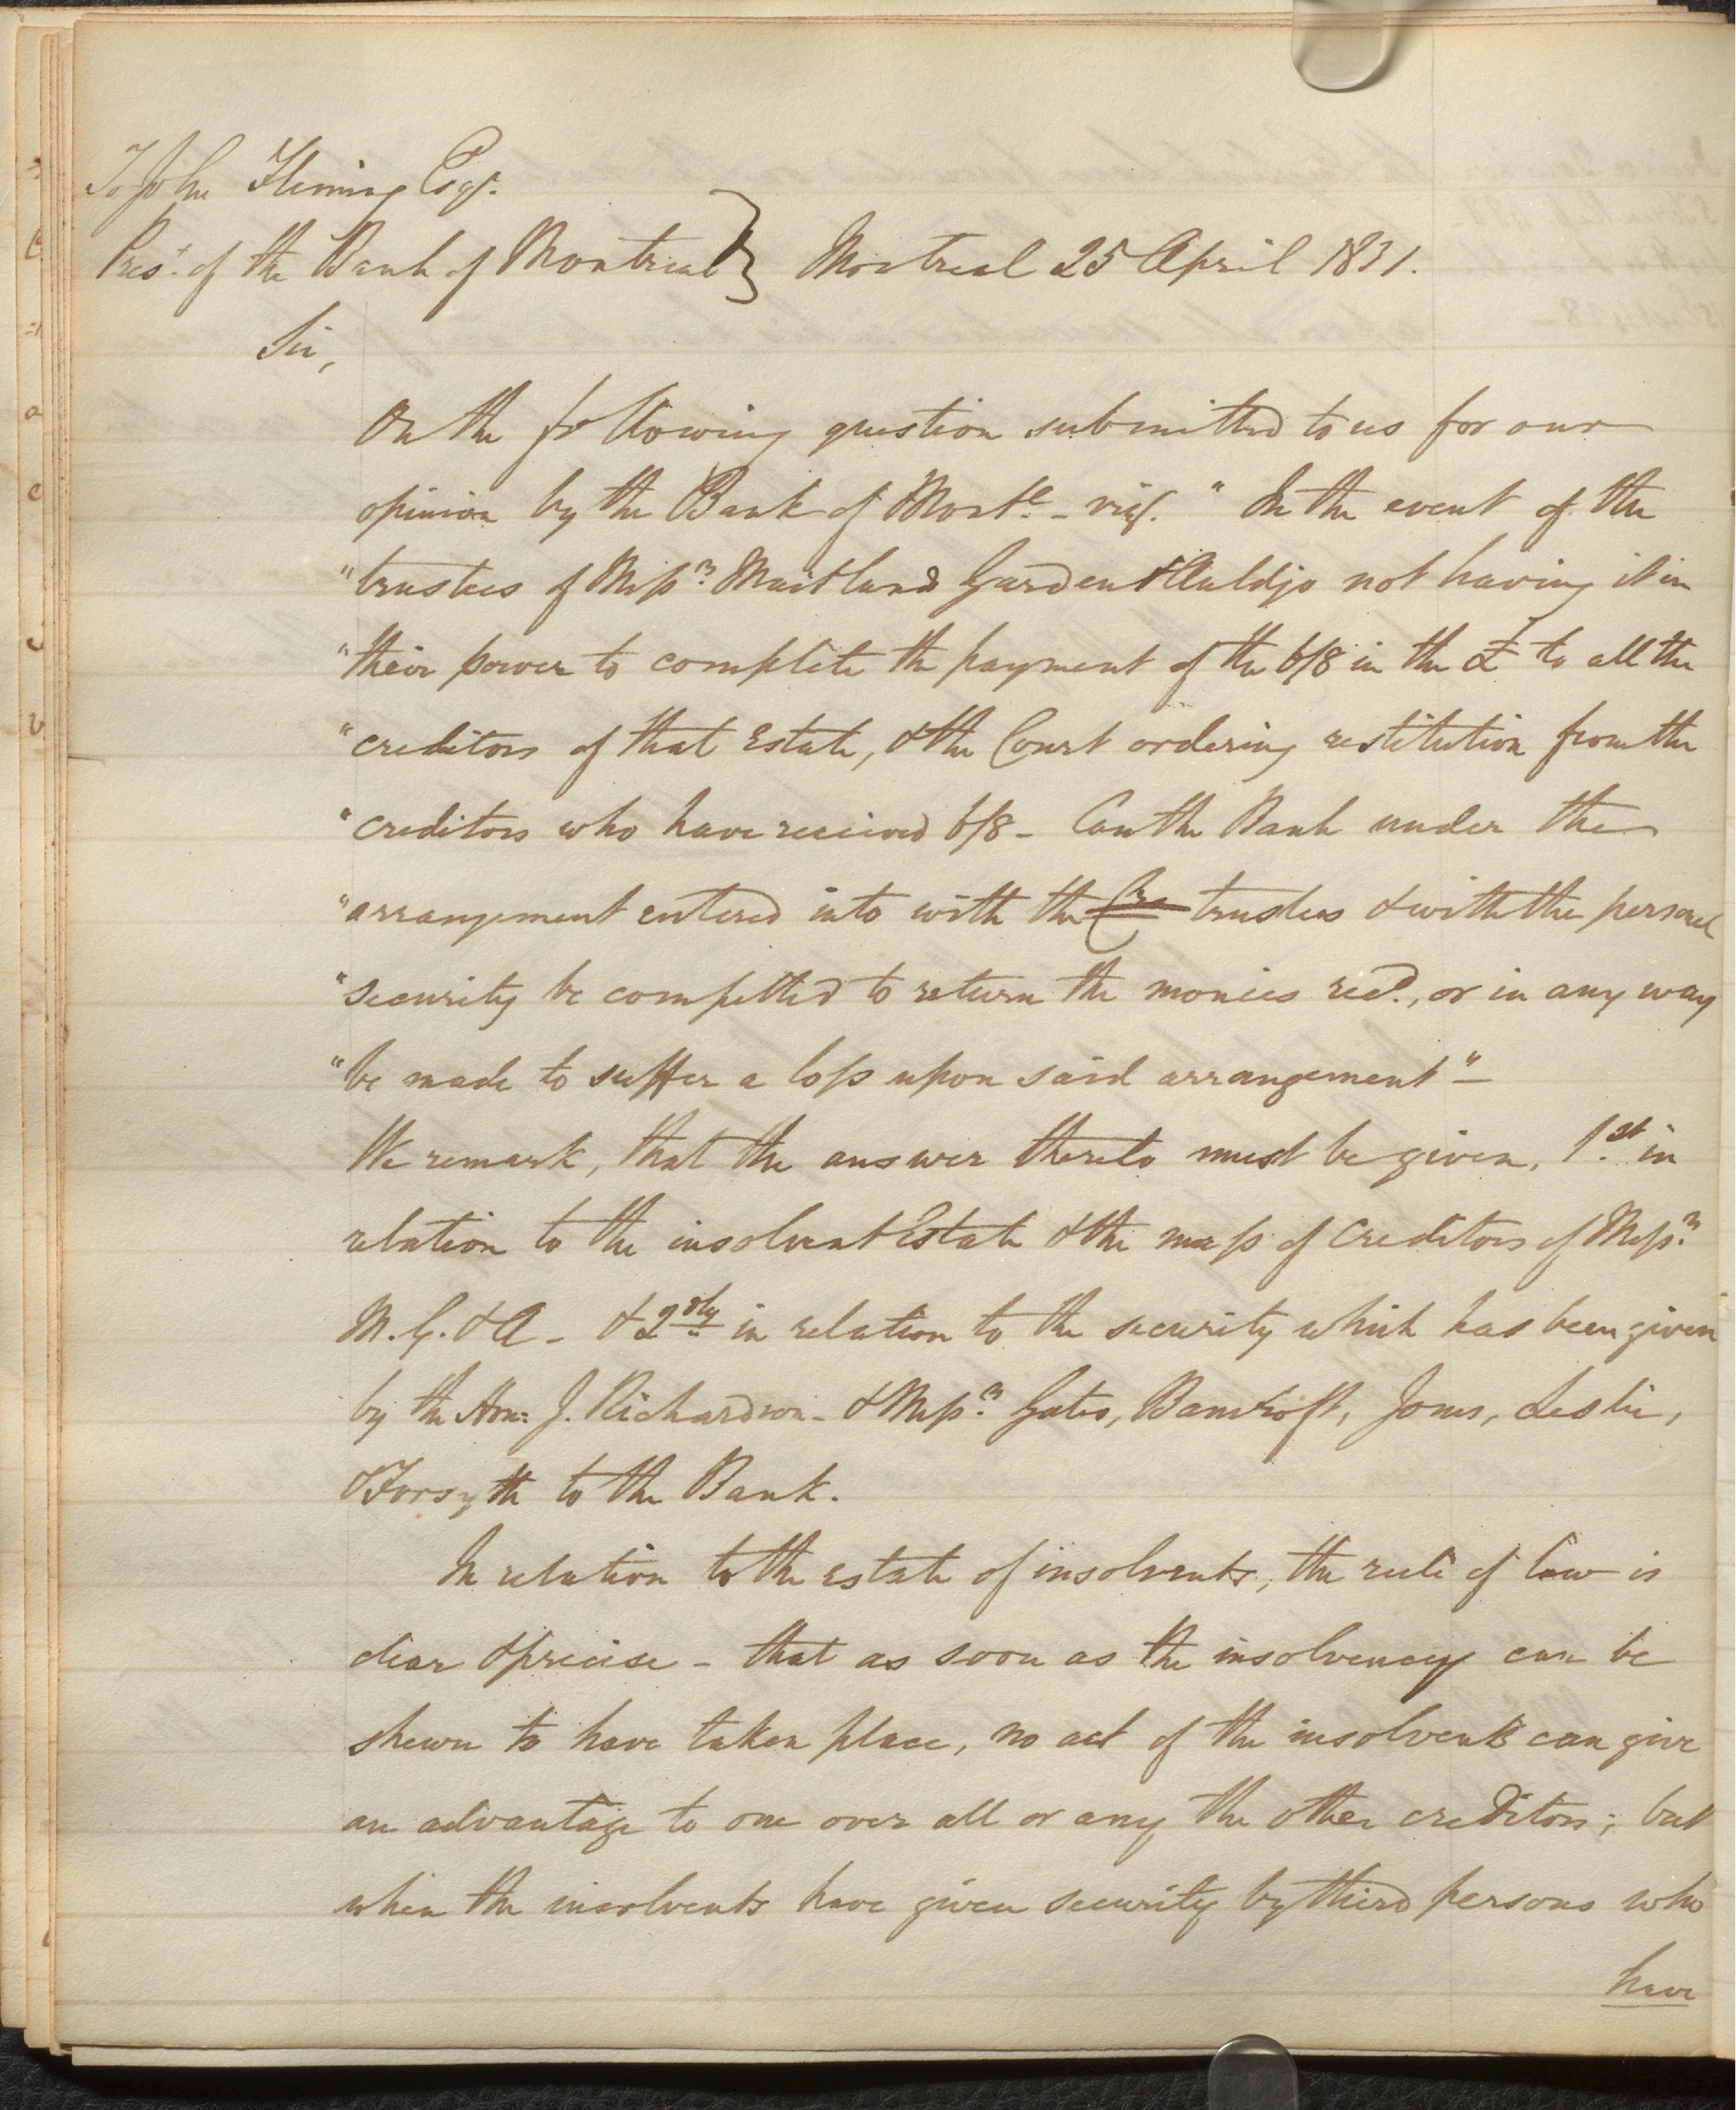 To John Fleming Esqr.
Prest. of the Bank of Montreal } Montreal 25 April 1831.
Sir,
On the following question submitted to us for our
opinion by the Bank of Montl. - viz. "In the event of the
"trustees of Messrs. Maitland Garden & Auldjo not having it in
"their power to complete the payment of the 6/8 in the £ to all the
"creditors of that Estate, & the Court ordering restitution from the
"creditors who have received 6/8 - Can the Bank under the
"arrangement entered into with the trustees & with the personal
"security be compelled to return the monies recd., or in any way
"be made to suffer a loss upon said arrangement" -
We remark, that the answer thereto must be given, 1.st in
relation to the insolvent Estate & the mass of Creditors of Messrs.
M. G. & A - & 2.dly in relation to the security which has been given
by the Hon: J. Richardson - & Messrs. Gates, Bancroft, Jones, Leslie,
& Forsyth to the Bank.
In relation to the estate of insolvents, the rule of law is
clear & precise - that as soon as the insolvency can be
shewn to have taken place, no act of the insolvents can give
an advantage to one over all or any the other creditors; but
when the insolvents have given security by third persons who
have